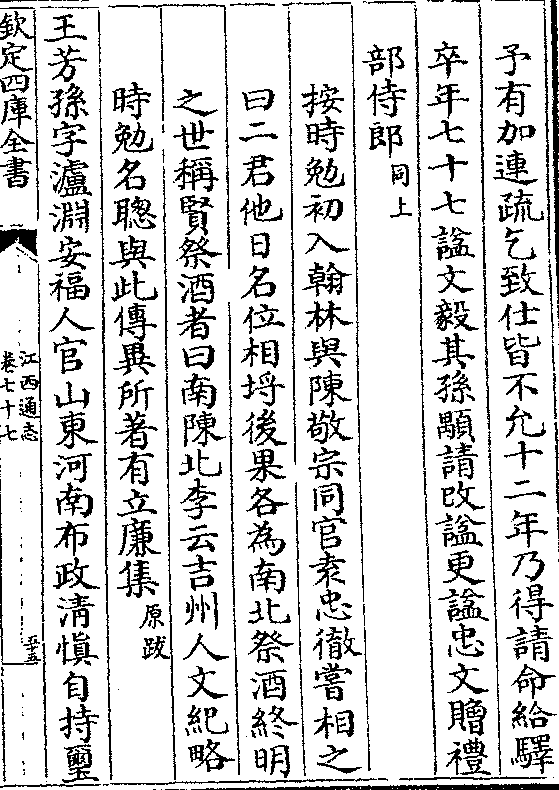 予有加連疏乞致仕皆不允十二年乃得請命給驛
卒年七十七諡文毅其孫顒請改諡更諡忠文贈禮
部侍郎同上
按時勉初入翰林與陳敬宗同官袁忠徹嘗相之
曰二君他日名位相埒後果各為南北祭酒終明
之世稱賢祭酒者曰南陳北李云吉州人文紀略
時勉名聰與此傳異所著有立廉集原跋
王芳孫字瀘淵安福人官山東河南布政清慎自持璽
欽定四庫全書
江西通志
卷七十七
五十五